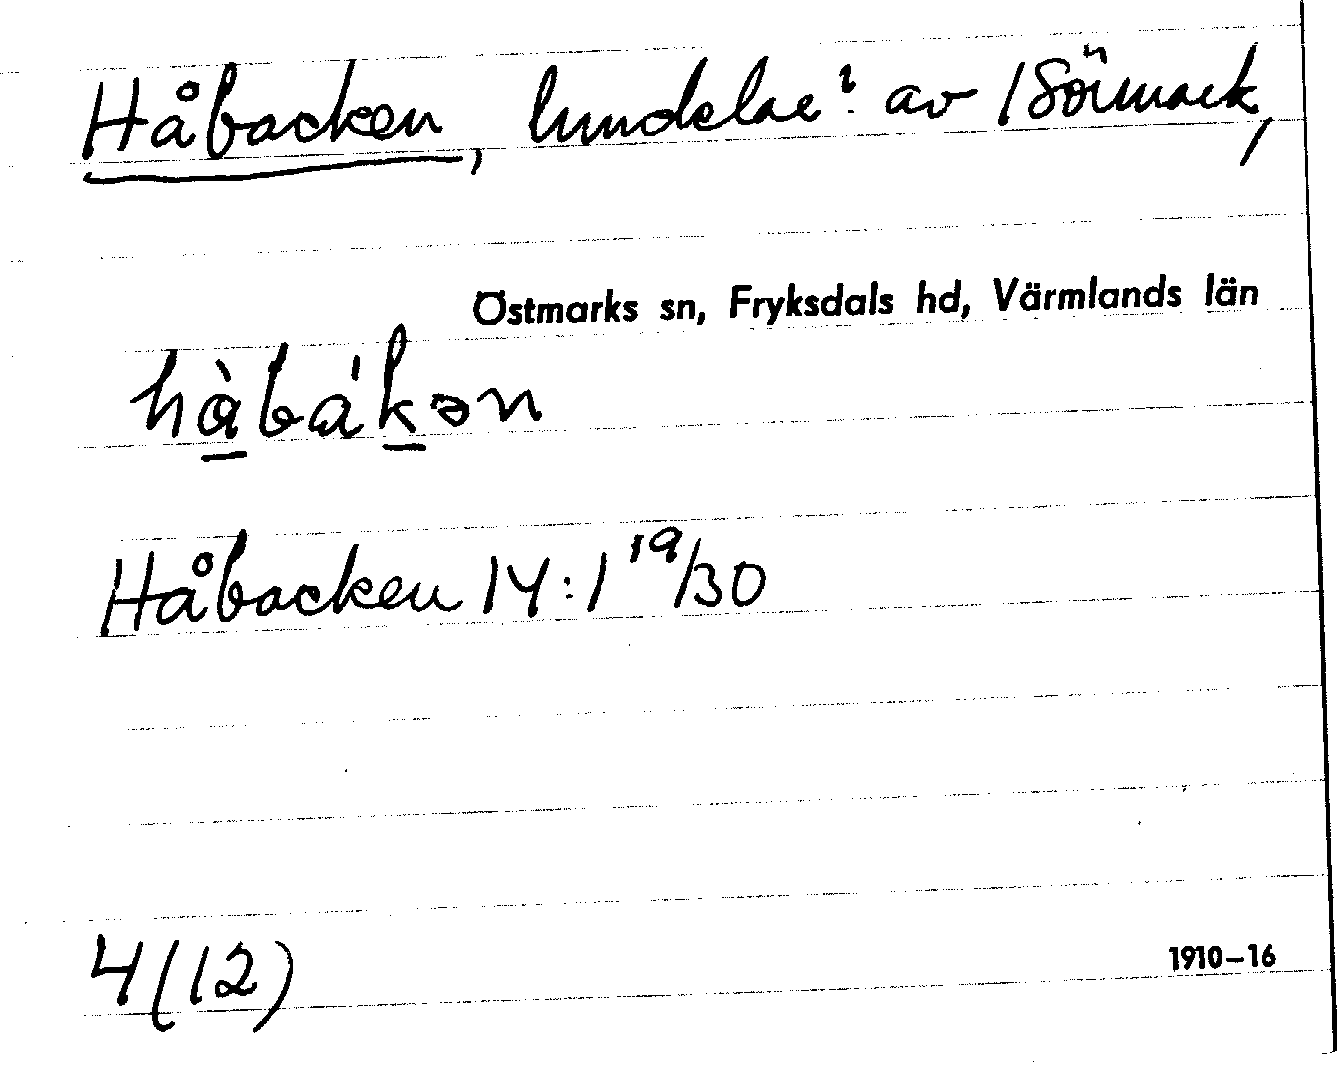 Håbacken, lundelar? av 1 Sörmark,
Östmarks sn, Fryksdals hd, Värmlands län
hàbákən
Håbacken 14:1 19/30
4(12)
1910–16